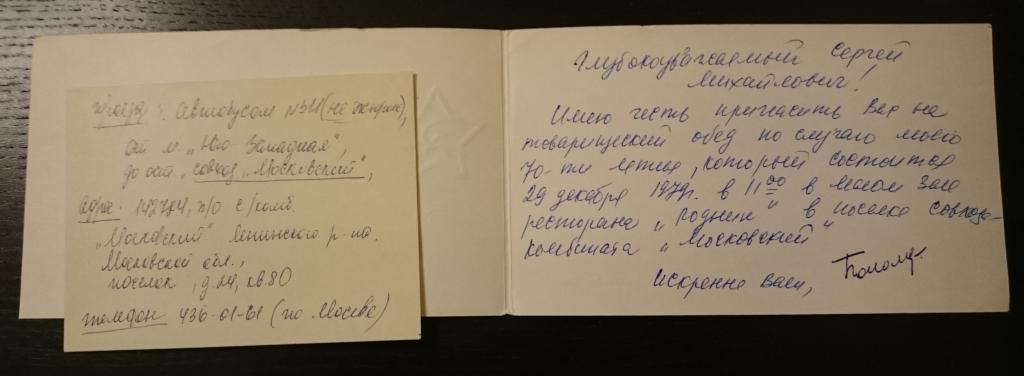 Проезд: Автобусом №511 (не экспресс),
от м. „Юго Западная",
до ост. „совхоз „Московский",
Адрес: 142774, п/о с/комб.
„Московский" Ленинского р-на.
Московской обл.,
поселок, д. 14, кв. 80
телефон 436-01-61 (по Москве)
Глубокоуважаемый Сергей
Михайлович!
Имею честь пригласить Вас на
товарищеский обед по случаю моего
70-ти летия, который состоится
29 декабря 1979г. в 11 00 в малом зале
ресторана „Родник" в поселке совхоза-
комбината „Московский"
Искренне Ваш,